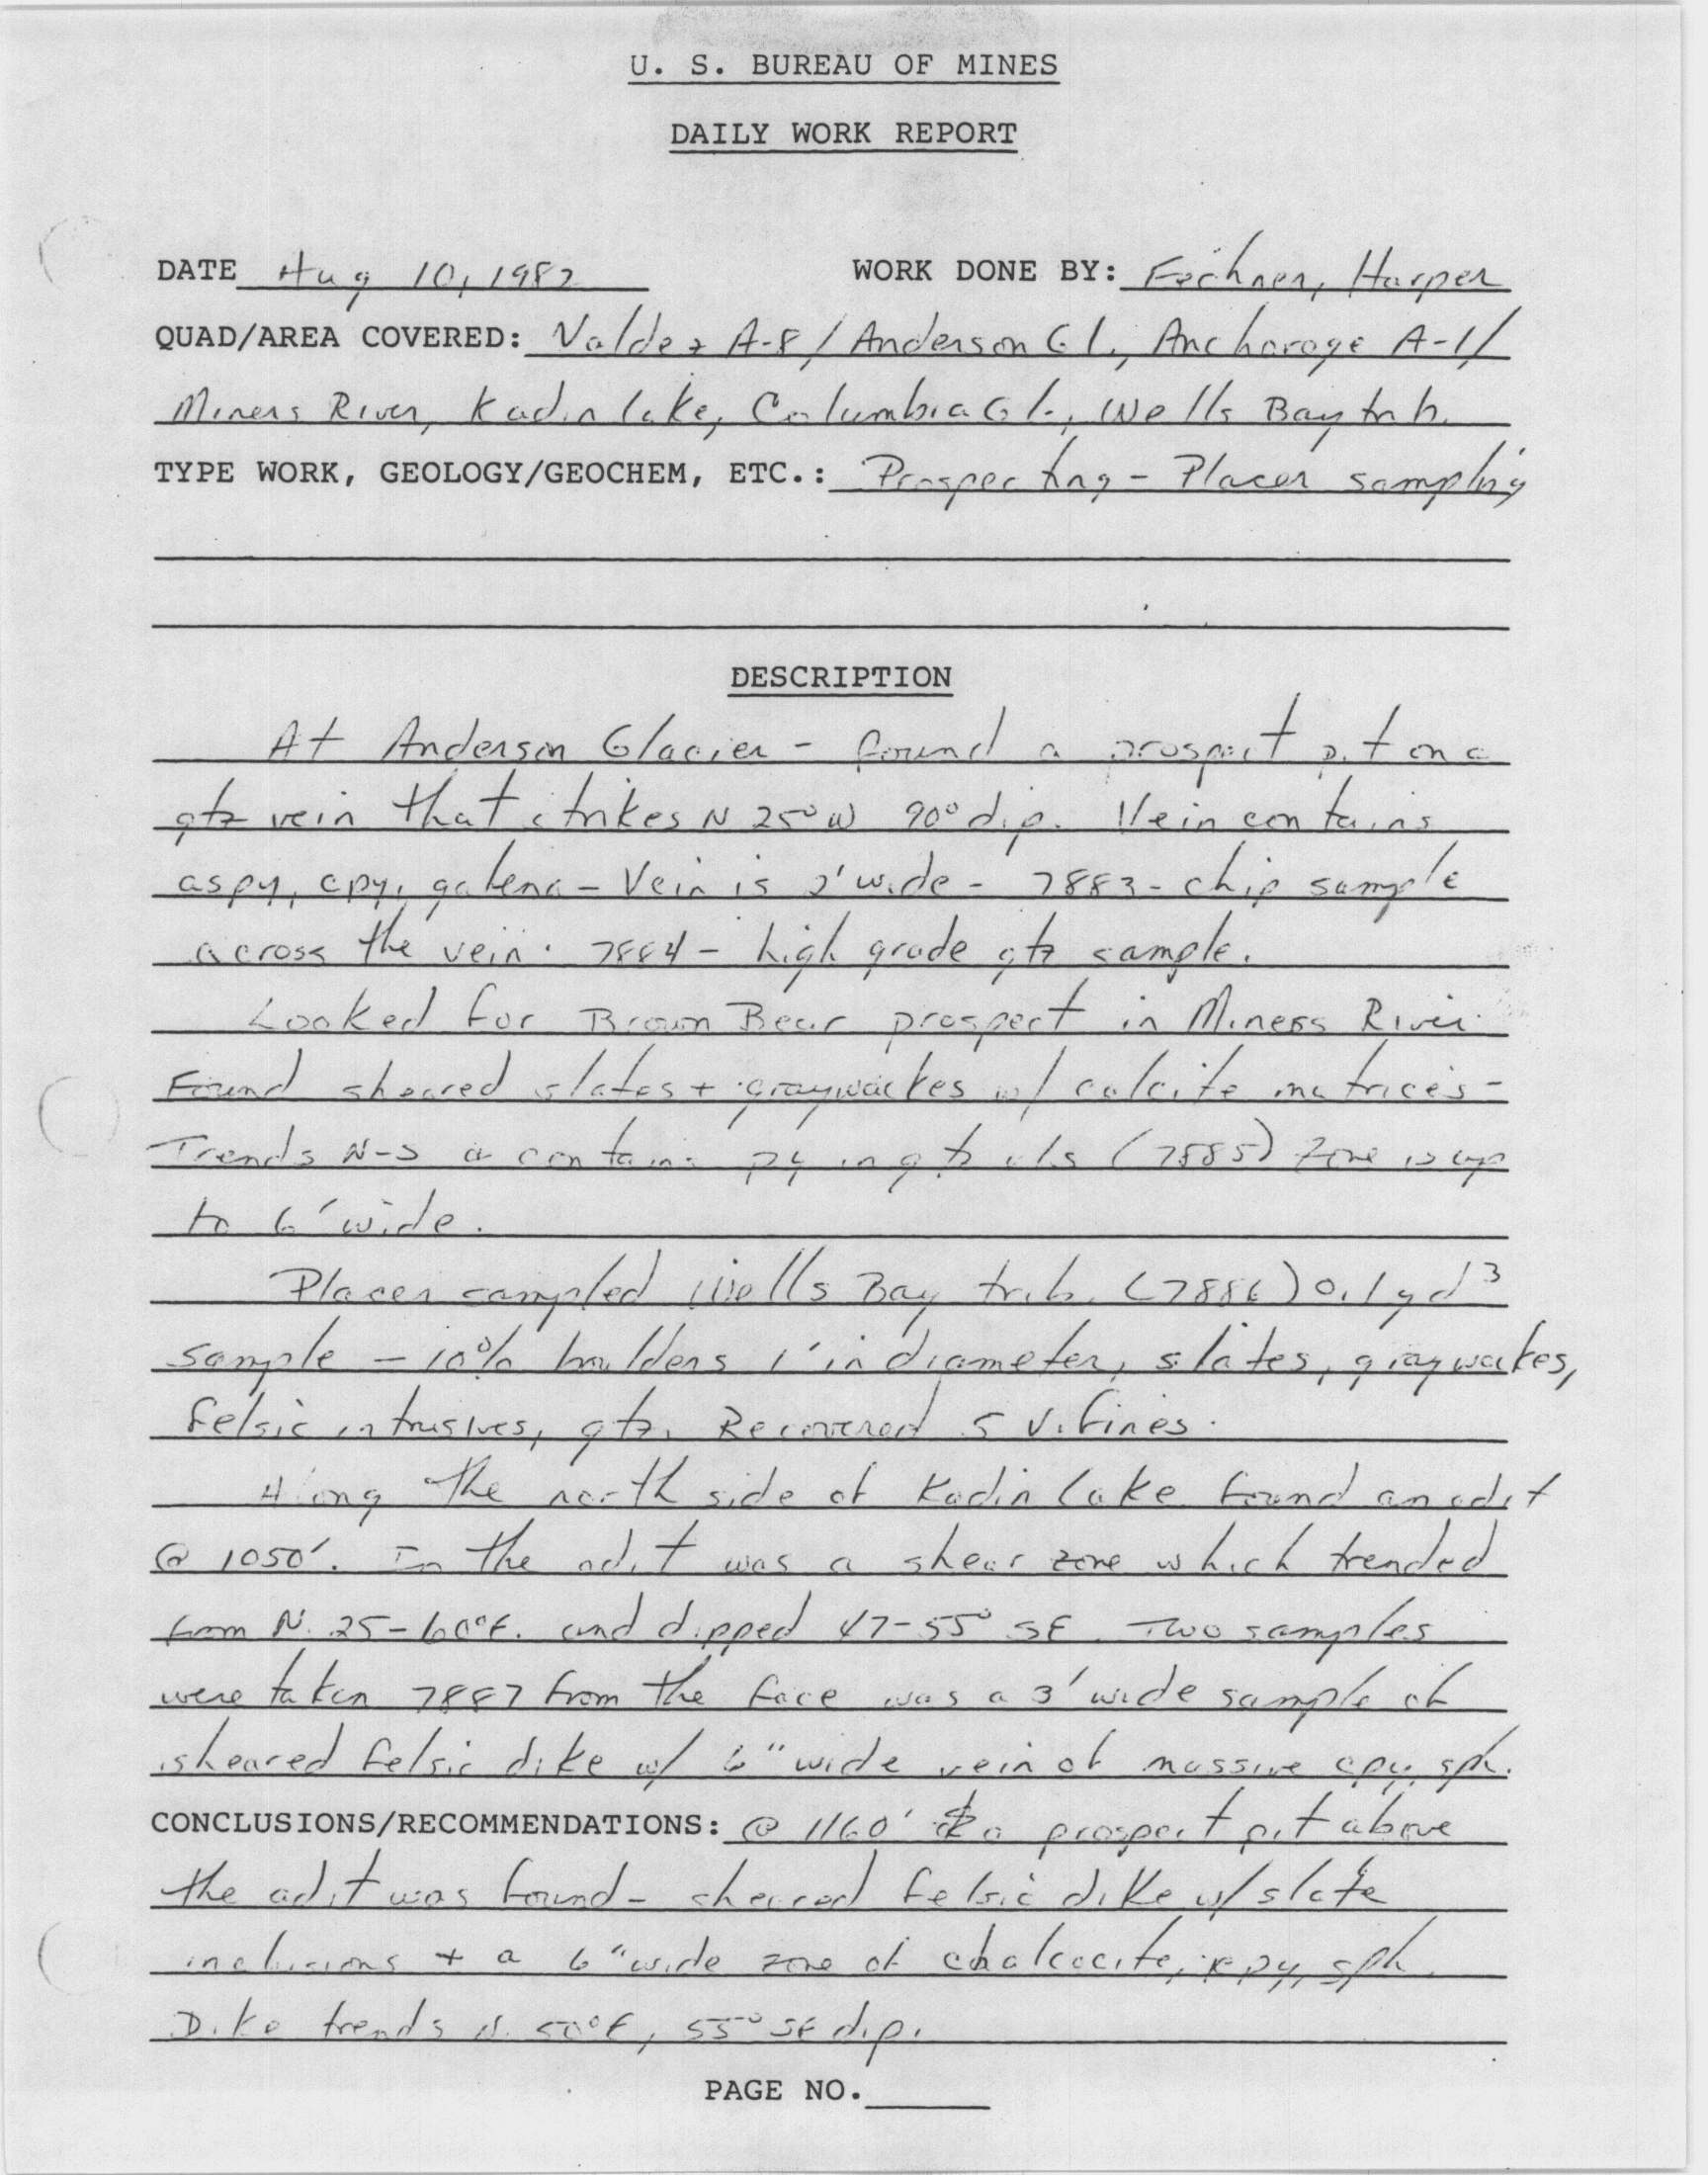 U. S. BUREAU OF MINES
DAILY WORK REPORT
DATE Aug 10, 1982 WORK DONE BY: Fechner, Harper
QUAD/AREA COVERED: Valdez A-8/Anderson Gl., Anchorage A-1/
Miners River, Kadin lake, Columbia Gl., Wells Bay trib.
TYPE WORK, GEOLOGY/GEOCHEM, ETC.: Prospecting - Placer sampling
DESCRIPTION
At Anderson Glacier - found a prospect pit on a
qtz vein that strikes N 25° W 90° dip. Vein contains
aspy, cpy, galena - Vein is 2' wide - 7883 - chip sample
across the vein. 7884 - high grade qtz sample.
Looked for Brown Bear prospect in Miners River
Found sheared slates + graywackes w/ calcite matrices -
Trends N-S & contains py in qtz vls (7885) Zone is up
to 6' wide.
Placer sampled Wells Bay trib. (7886) 0.1 yd³
sample - 10% boulders 1' in diameter, slates, graywackes,
felsic intrusives, qtz. Recovered 5 v. fines.
Along the north side of Kadin lake found an adit
@ 1050'. In the adit was a shear zone which trended
from N. 25-60°E. and dipped 47-55° SE. Two samples
were taken 7887 from the face was a 3' wide sample of
sheared felsic dike w/ 6" wide vein of massive cpy, sph.
CONCLUSIONS/RECOMMENDATIONS: @ 1160' a prospect pit above
the adit was found - sheared felsic dike w/ slate
inclusions + a 6" wide zone of chalcocite, cpy, sph.
Dike trends N. 50°E, 55° SE dip.
PAGE NO.